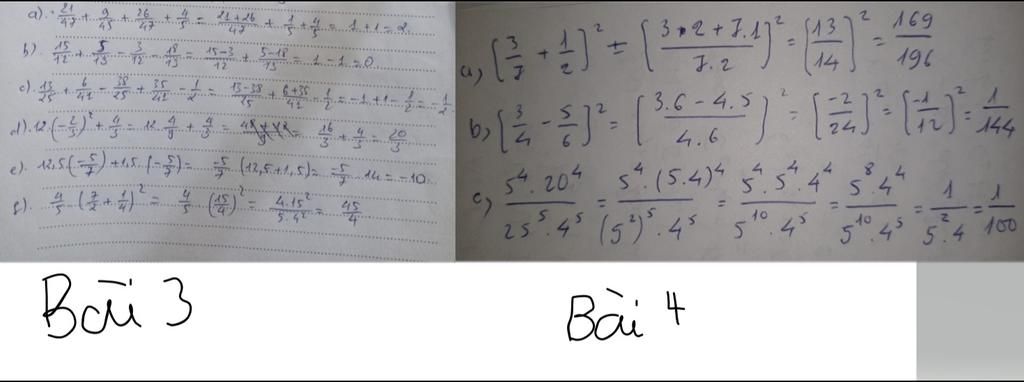 a). 21/47 + 9/45 + 26/47 + 4/5 = (21+26)/47 + 1/5 + 4/5 = 1 + 1 = 2
b). 15/12 + 5/13 - 3/12 - 18/13 = (15-3)/12 + (5-18)/13 = 1 - 1 = 0
c). 13/25 + 6/41 - 38/25 + 35/41 - 1/2 = (13-38)/25 + (6+35)/41 - 1/2 = -1 + 1 - 1/2 = -1/2
d). 12.(-2/3)² + 4/3 = 12. 4/9 + 4/3 = = 16/3 + 4/3 = 20/3
e). 12,5.(-5/7) + 1,5.(-5/7) = -5/7 (12,5 + 1,5) = -5/7 . 14 = -10
f). 4/5 . (7/2 + 1/4)² = 4/5 . (15/4)² = 4.15²/5.4² = 45/4
a, [3/7 + 1/2]² = [(3.2 + 7.1)/7.2]² = [13/14]² = 169/196
b, [3/4 - 5/6]² = [(3.6 - 4.5)/4.6)² = [-2/24]² = [-1/12]² = 1/144
c, 5⁴.20⁴/25⁵.4⁵ = 5⁴.(5.4)⁴/(5²)⁵.4⁵ = 5⁴.5⁴.4⁴/5¹⁰.4⁵ = 5⁸.4⁴/5¹⁰.4⁵ = 1/5².4 = 1/100
Bài 3
Bài 4